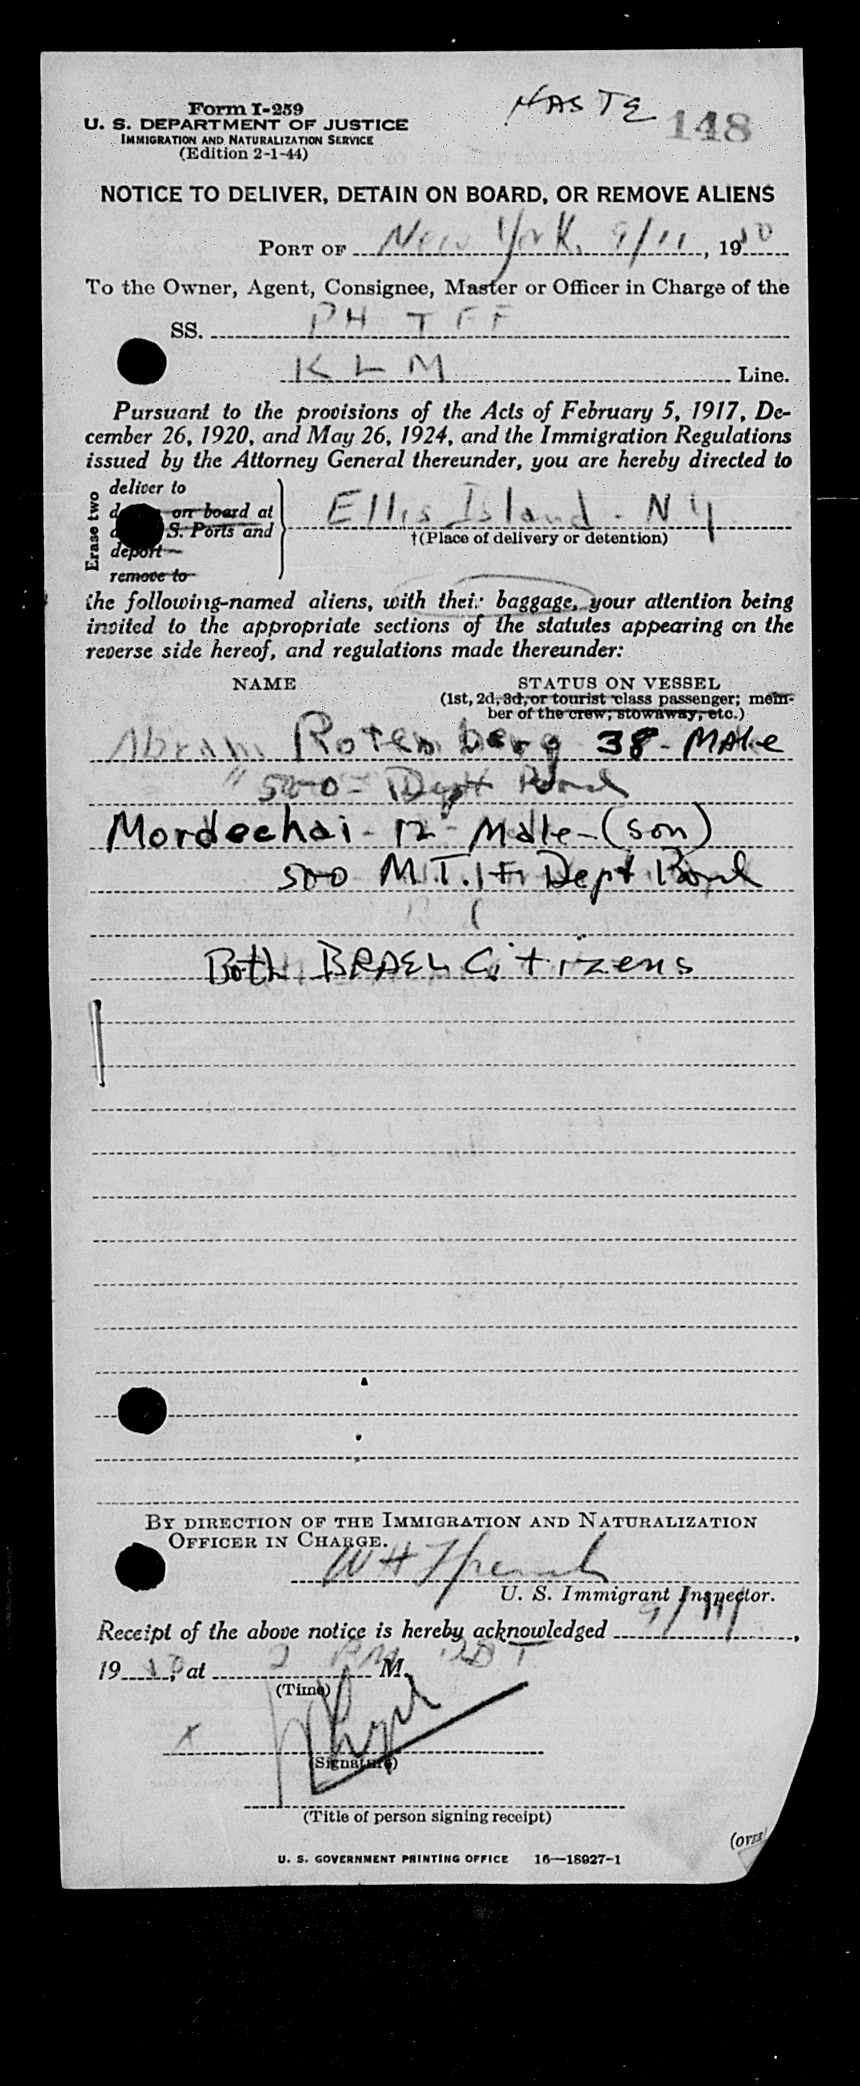 HASTE
148
Form I-259
U. S. DEPARTMENT OF JUSTICE
IMMIGRATION AND NATURALIZATION SERVICE
(Edition 2-1-44)
NOTICE TO DELIVER, DETAIN ON BOARD, OR REMOVE ALIENS
PORT OF New York, 9/11, 1950
To the Owner, Agent, Consignee, Master or Officer in Charge of the
SS. PH TFF
KLM Line.
Pursuant to the provisions of the Acts of February 5, 1917, De-
cember 26, 1920, and May 26, 1924, and the Immigration Regulations
issued by the Attorney General thereunder, you are hereby directed to
Erase two
deliver to
on board at
S. Ports and
deport
remove to
Ellis Island - NY
†(Place of delivery or detention)
the following-named aliens, with their baggage, your attention being
invited to the appropriate sections of the statutes appearing on the
reverse side hereof, and regulations made thereunder:
NAME
STATUS ON VESSEL
(1st, 2d, 3d, or tourist class passenger; mem-
ber of the crew, stowaway, etc.)
Abram Rotenberg 38 - Male
" 500 - Dept Bond
Mordechai - 12 - Male - (son)
500 M.T.I.F. Dept Bond
Both ISRAEL Citizens
BY DIRECTION OF THE IMMIGRATION AND NATURALIZATION
OFFICER IN CHARGE.
U. S. Immigrant Inspector.
Receipt of the above notice is hereby acknowledged 9/11,
1950, at 2 PM M.
(Time)
x
(Signature)
(Title of person signing receipt)
(OVER)
U. S. GOVERNMENT PRINTING OFFICE 16—18927-1